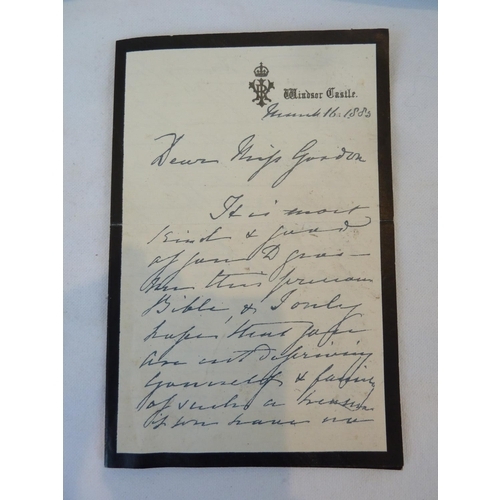 Windsor Castle.
March 16. 1885
Dear Miss Gordon
It is most
kind & good
of you to give
me this precious
Bible, & I only
hope that you
are not depriving
yourself & family
of such a treasure
if you have no